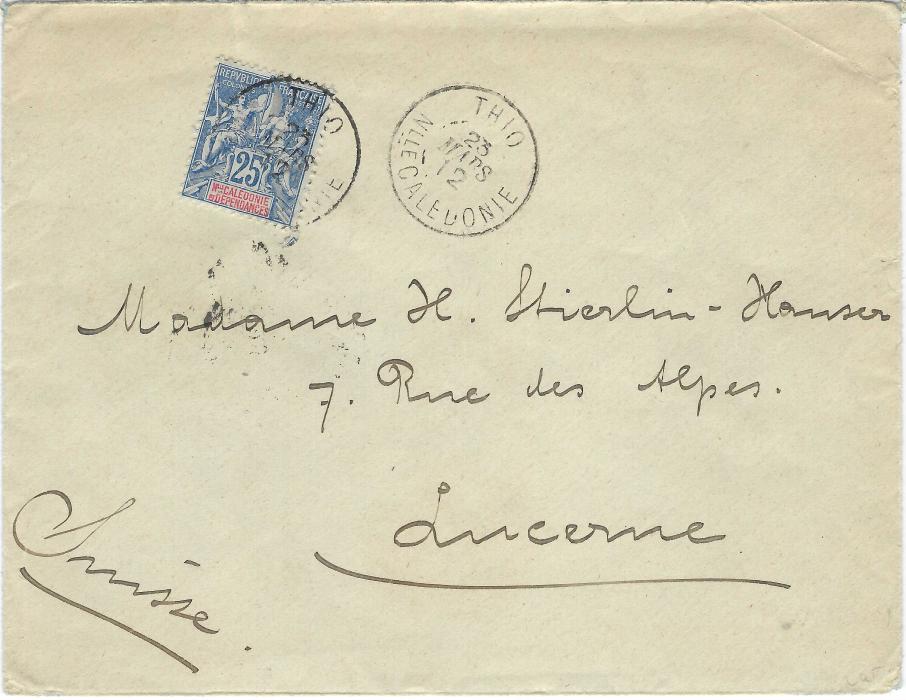 REPUBLIQUE FRANÇAISE
COLONIES
25
Nlle CALÉDONIE
ET DÉPENDANCES
THIO
23
MARS
12
THIO
23
MARS
12
NLLE CALEDONIE
Madame H. Stierlin-Hauser
7. Rue des Alpes.
Lucerne
Suisse.